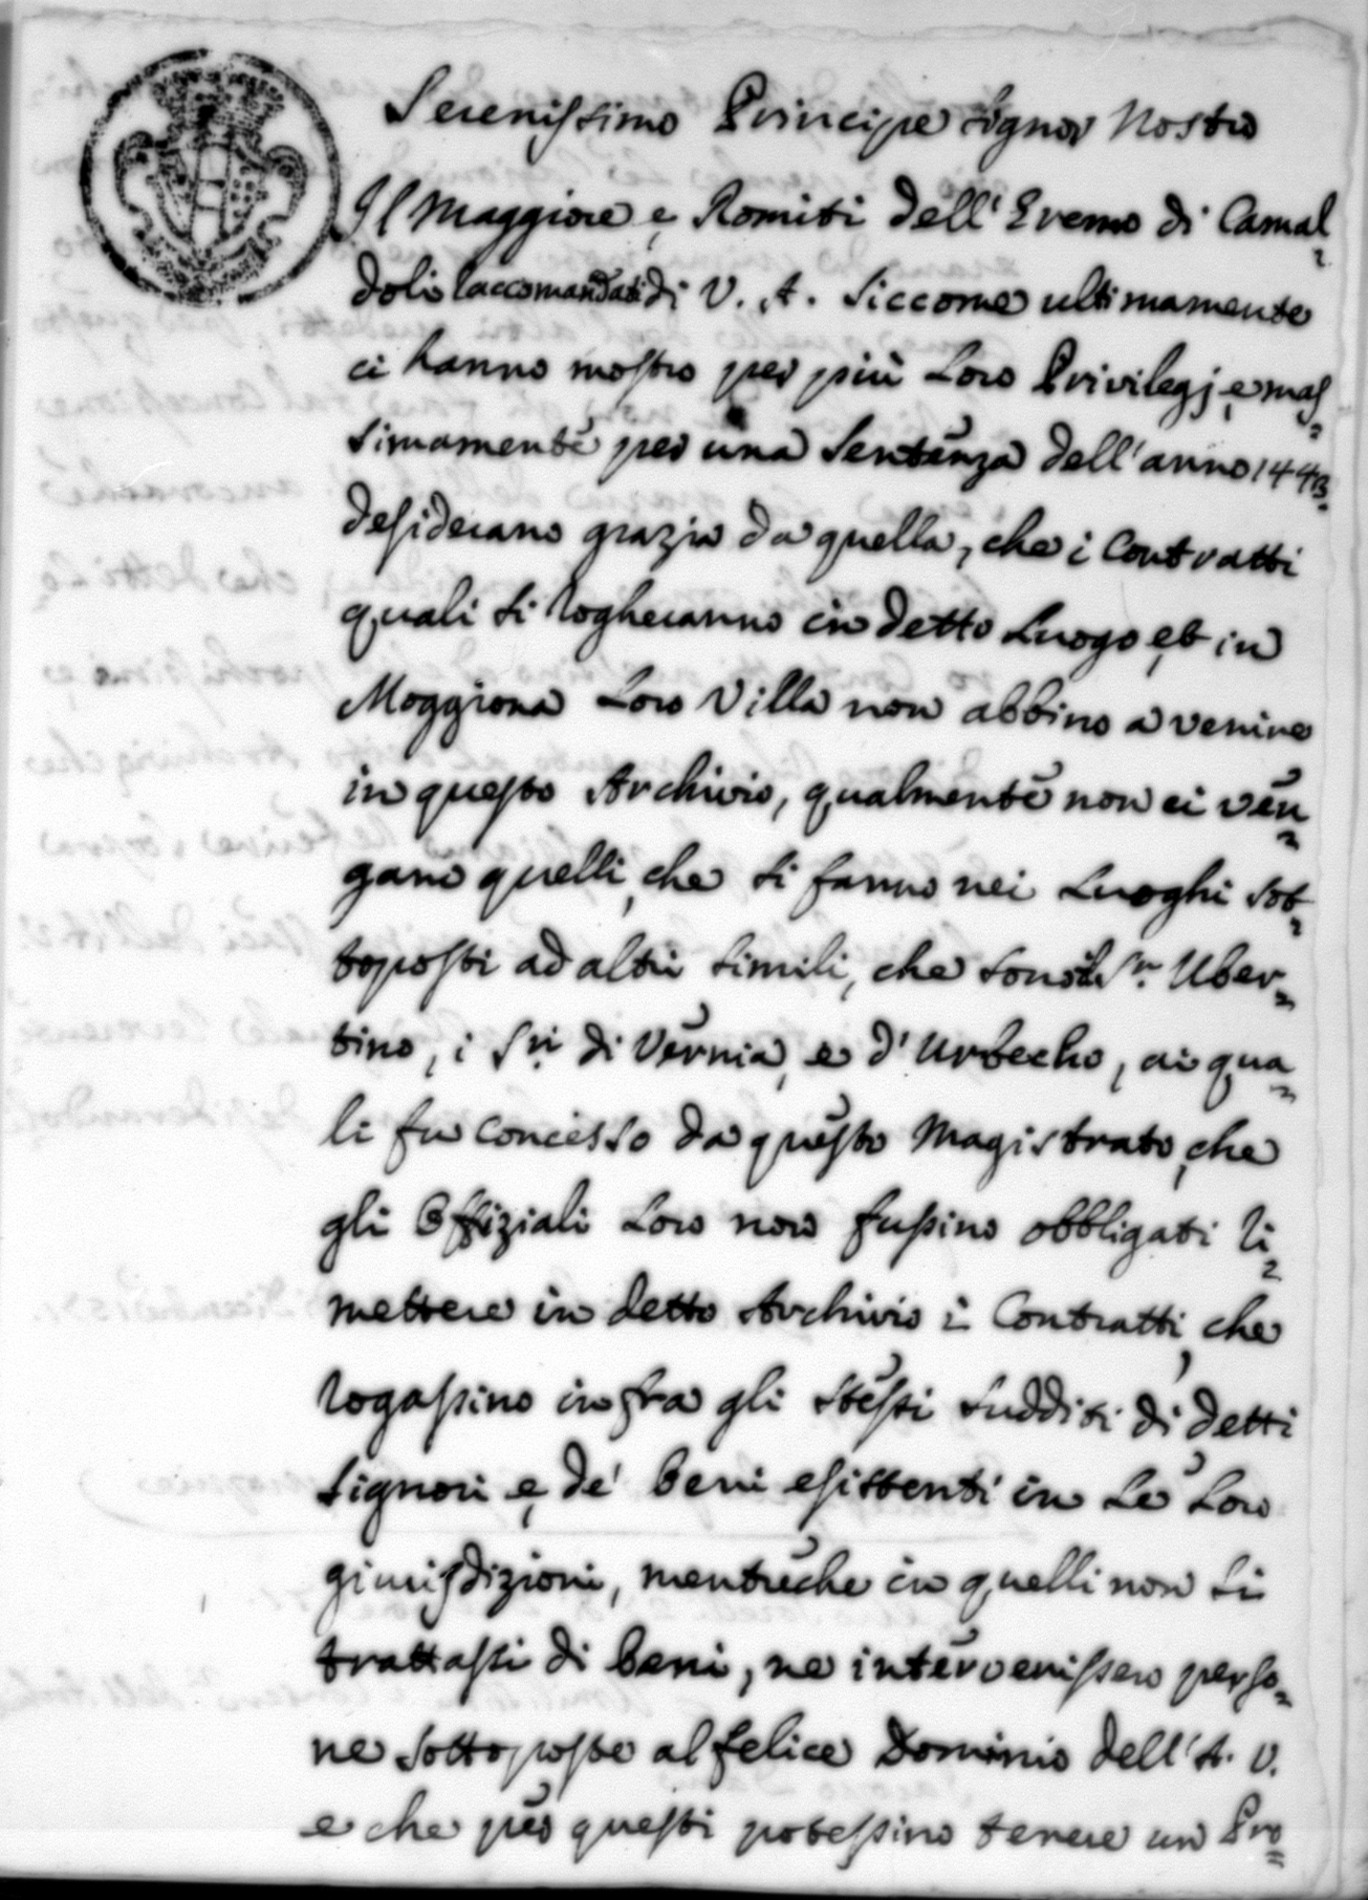 Serenissimo Principe Signor Nostro
Il Maggiore e Romiti dell'Eremo di Camal=
doli raccomandati di V. A. Siccome ultimamente
ci hanno mostro per più Loro Privilegj e mas=
simamente per una Sentenza dell'anno 1443
desiderano grazia da quella, che i Contratti
quali si rogheranno in detto Luogo et in
Moggiona Loro Villa non abbino a venire
in questo Archivio, qualmente non ci ven=
gano quelli, che si fanno nei Luoghi sot=
toposti ad altri simili, che sono il Sr. Uber=
tino, i Sri di Vernia, e d'Urbecho, ai qua=
li fu concesso da questo Magistrato, che
gli Offiziali Loro non fussino obbligati ri=
mettere in detto Archivio i Contratti, che
rogassino infra gli stessi sudditi di detti
Signori e de' beni esistenti in Le Loro
giurisdizioni, mentreche in quelli non si
trattassi di beni, ne intervenissero perso=
ne sottoposte al felice Dominio dell'A. V.
e che per questi potessino tenere un Pro=